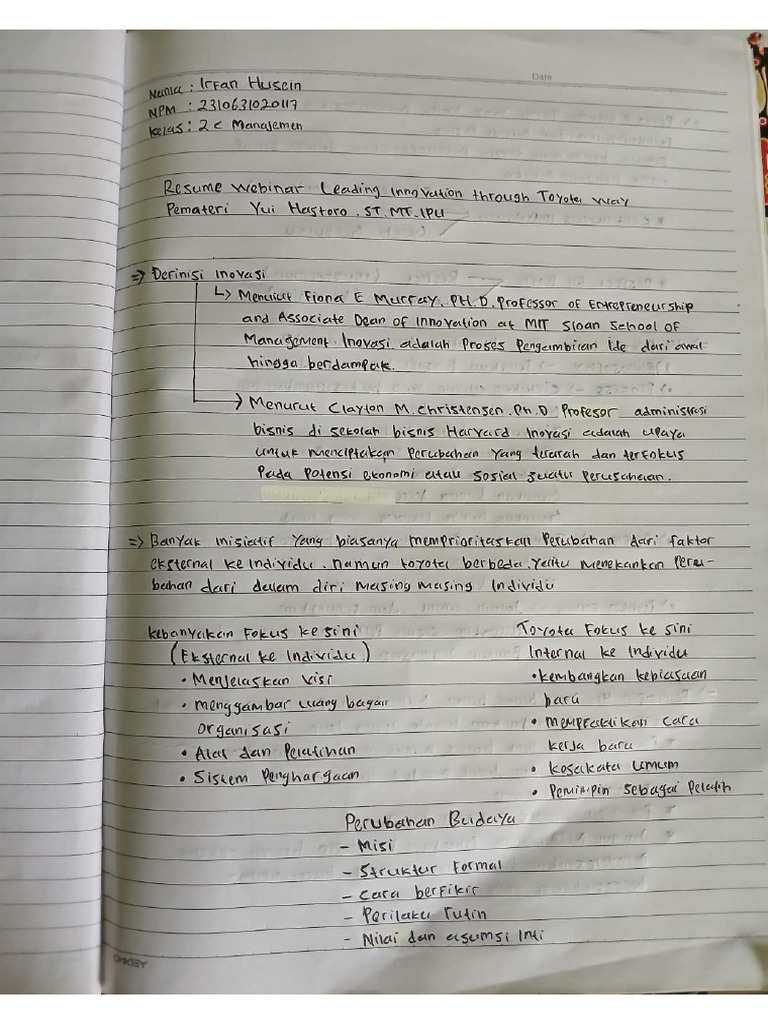 Date
Nama : Irfan Husein
NPM : 2310631020117
Kelas : 2C Manajemen
Resume Webinar Leading Innovation through Toyota Way
Pemateri Yui Hastoro, ST. MT. IPU
=> Definisi Inovasi
↳ Menurut Fiona E Murray, PH.D, Professor of Entrepreneurship
and Associate Dean of Innovation at MIT Sloan School of
Management. Inovasi adalah Proses Pengambilan Ide dari awal
hingga berdampak.
→ Menurut Clayton M. Christensen, Ph.D Profesor administrasi
bisnis di sekolah bisnis Harvard. Inovasi adalah upaya
untuk menciptakan Perubahan Yang terarah dan terfokus
Pada Potensi ekonomi atau sosial suatu Perusahaan.
=> Banyak inisiatif Yang biasanya memprioritaskan Perubahan dari faktor
eksternal ke individu. namun toyota berbeda, yaitu menekankan Peru-
bahan dari dalam diri masing masing Individu
kebanyakan Fokus ke sini
(Eksternal ke Individu)
• Menjelaskan Visi
• menggambar ulang bagan
organisasi
• Alat dan Pelatihan
• Sistem Penghargaan
Toyota Fokus ke sini
Internal ke Individu
• kembangkan kebiasaan
baru
• mempraktikan cara
kerja baru
• kosakata umum
• Pemimpin sebagai Pelatih
Perubahan Budaya
- Misi
- Struktur Formal
- Cara berfikir
- Perilaku rutin
- Nilai dan asumsi Inti